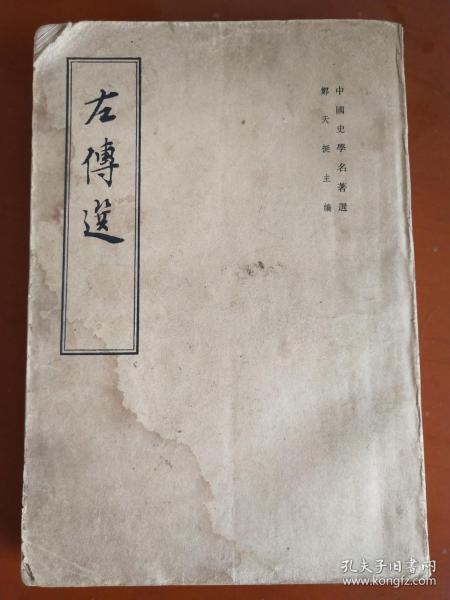 中國史學名著選
鄭天挺主編
左傳選
孔夫子旧书网
www.kongfz.com